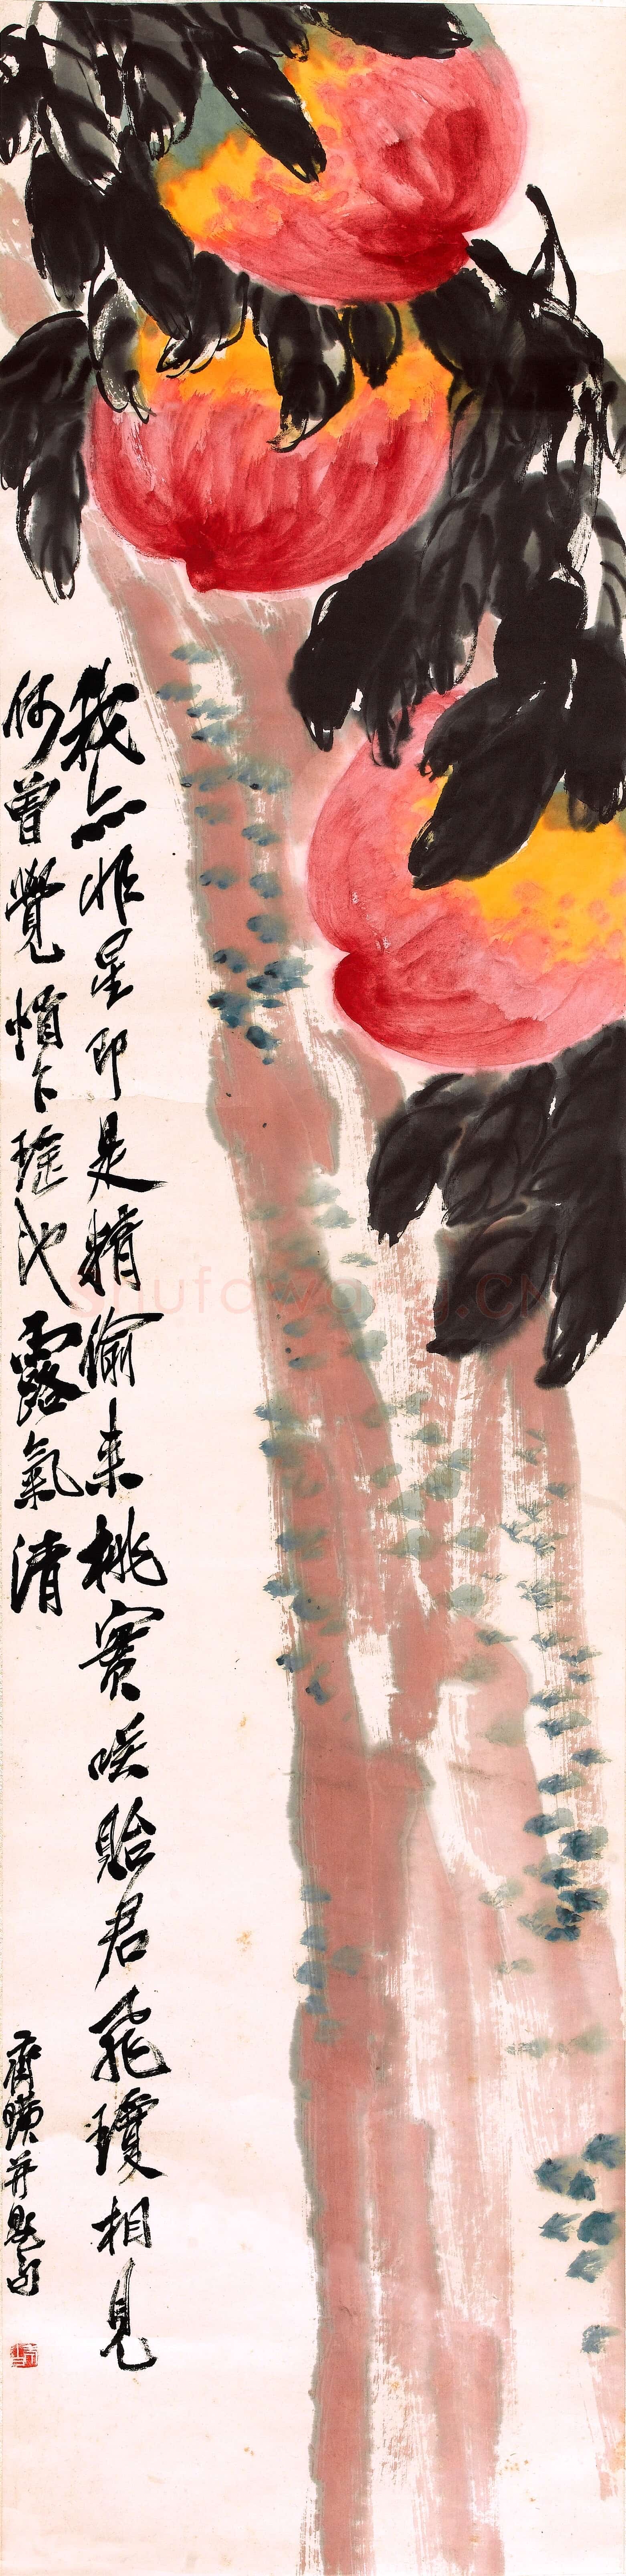 我亦非星即是精偷来桃實咲貽君飛瓊相見
何曾覺悄下瑤池露氣清
齊璜并題句
shufawang.CN